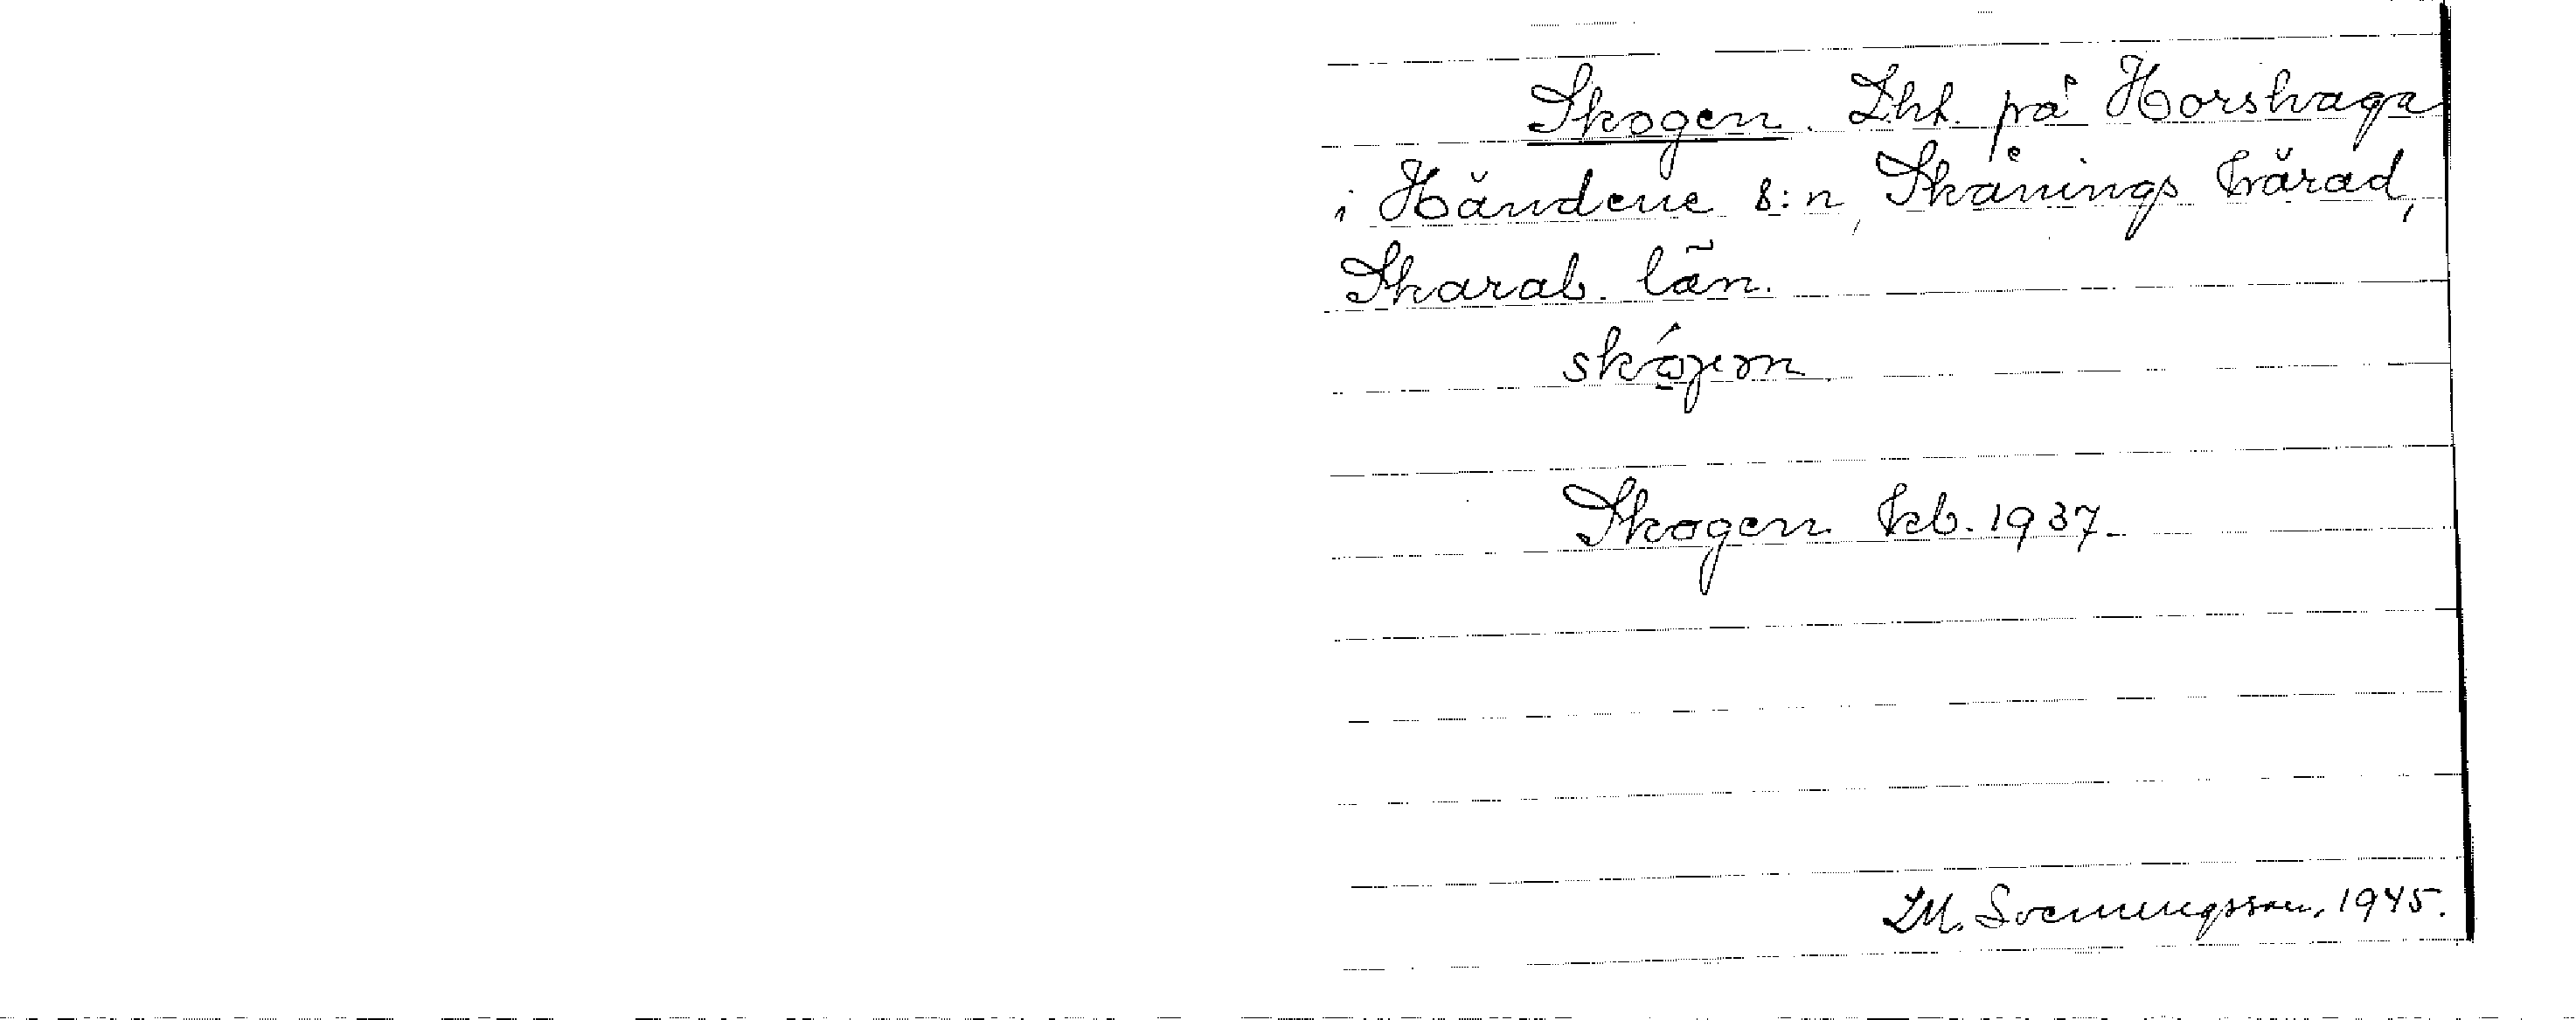 Skogen. Lht. på Horshaga
i Händene s:n, Skånings härad,
Skarab. län.
Skogen kb. 1937.
M. Svenungsson, 1945.